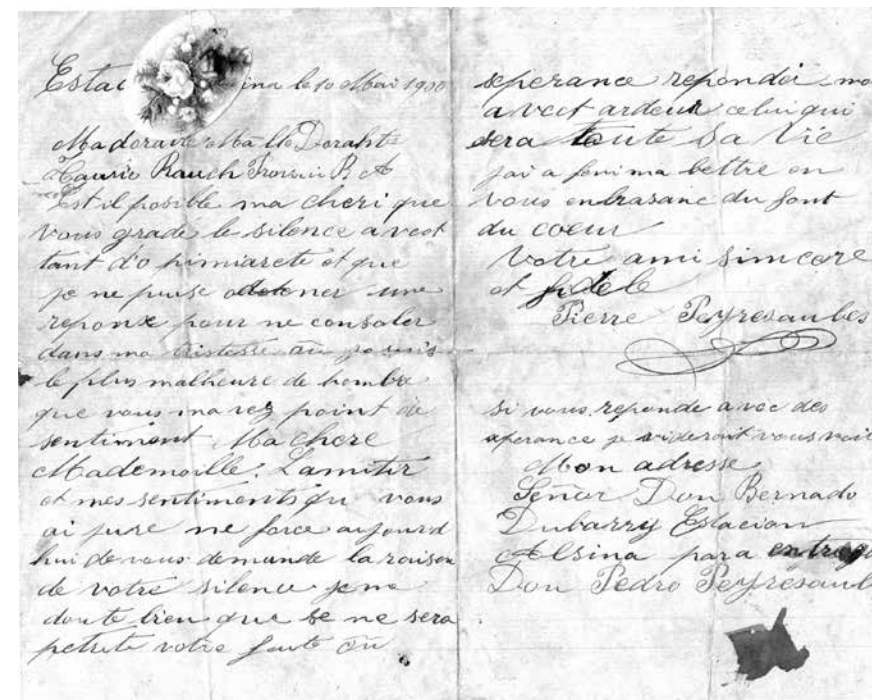 Estac ina le 10 Mai 1900
Madoravie Mlle Dorahte
Laurie Rauch Trovoin B. A
Est il posible ma cheri que
vous grade le silence avect
tant d'o pimiarete et que
je ne puise obtener une
reponxe pour ne consoler
dans ma tristesse ou je suis
le plus malheure de hombre
que vous mavez point de
sentiment Ma chere
Mademoille. Lamitir
et mes sentiments qu vous
ai jure me force aujourd
hui de vous demande la raison
de votre silence je me
doute bien que se ne sera
petrete votre faute ou
seperance repondei mo
avect ardeur celui qui
sera toute sa Vie
jai a feni ma lettre en
vous enbrasanc du font
du coeur
Votre ami simcere
et fidele
Pierre Peyresaubes
si vous reponde avec des
sperance je videroit vous voir
Mon adresse
Señor Don Bernado
Dubarry Estacion
Alsina para entrega
Don Pedro Peyresaul